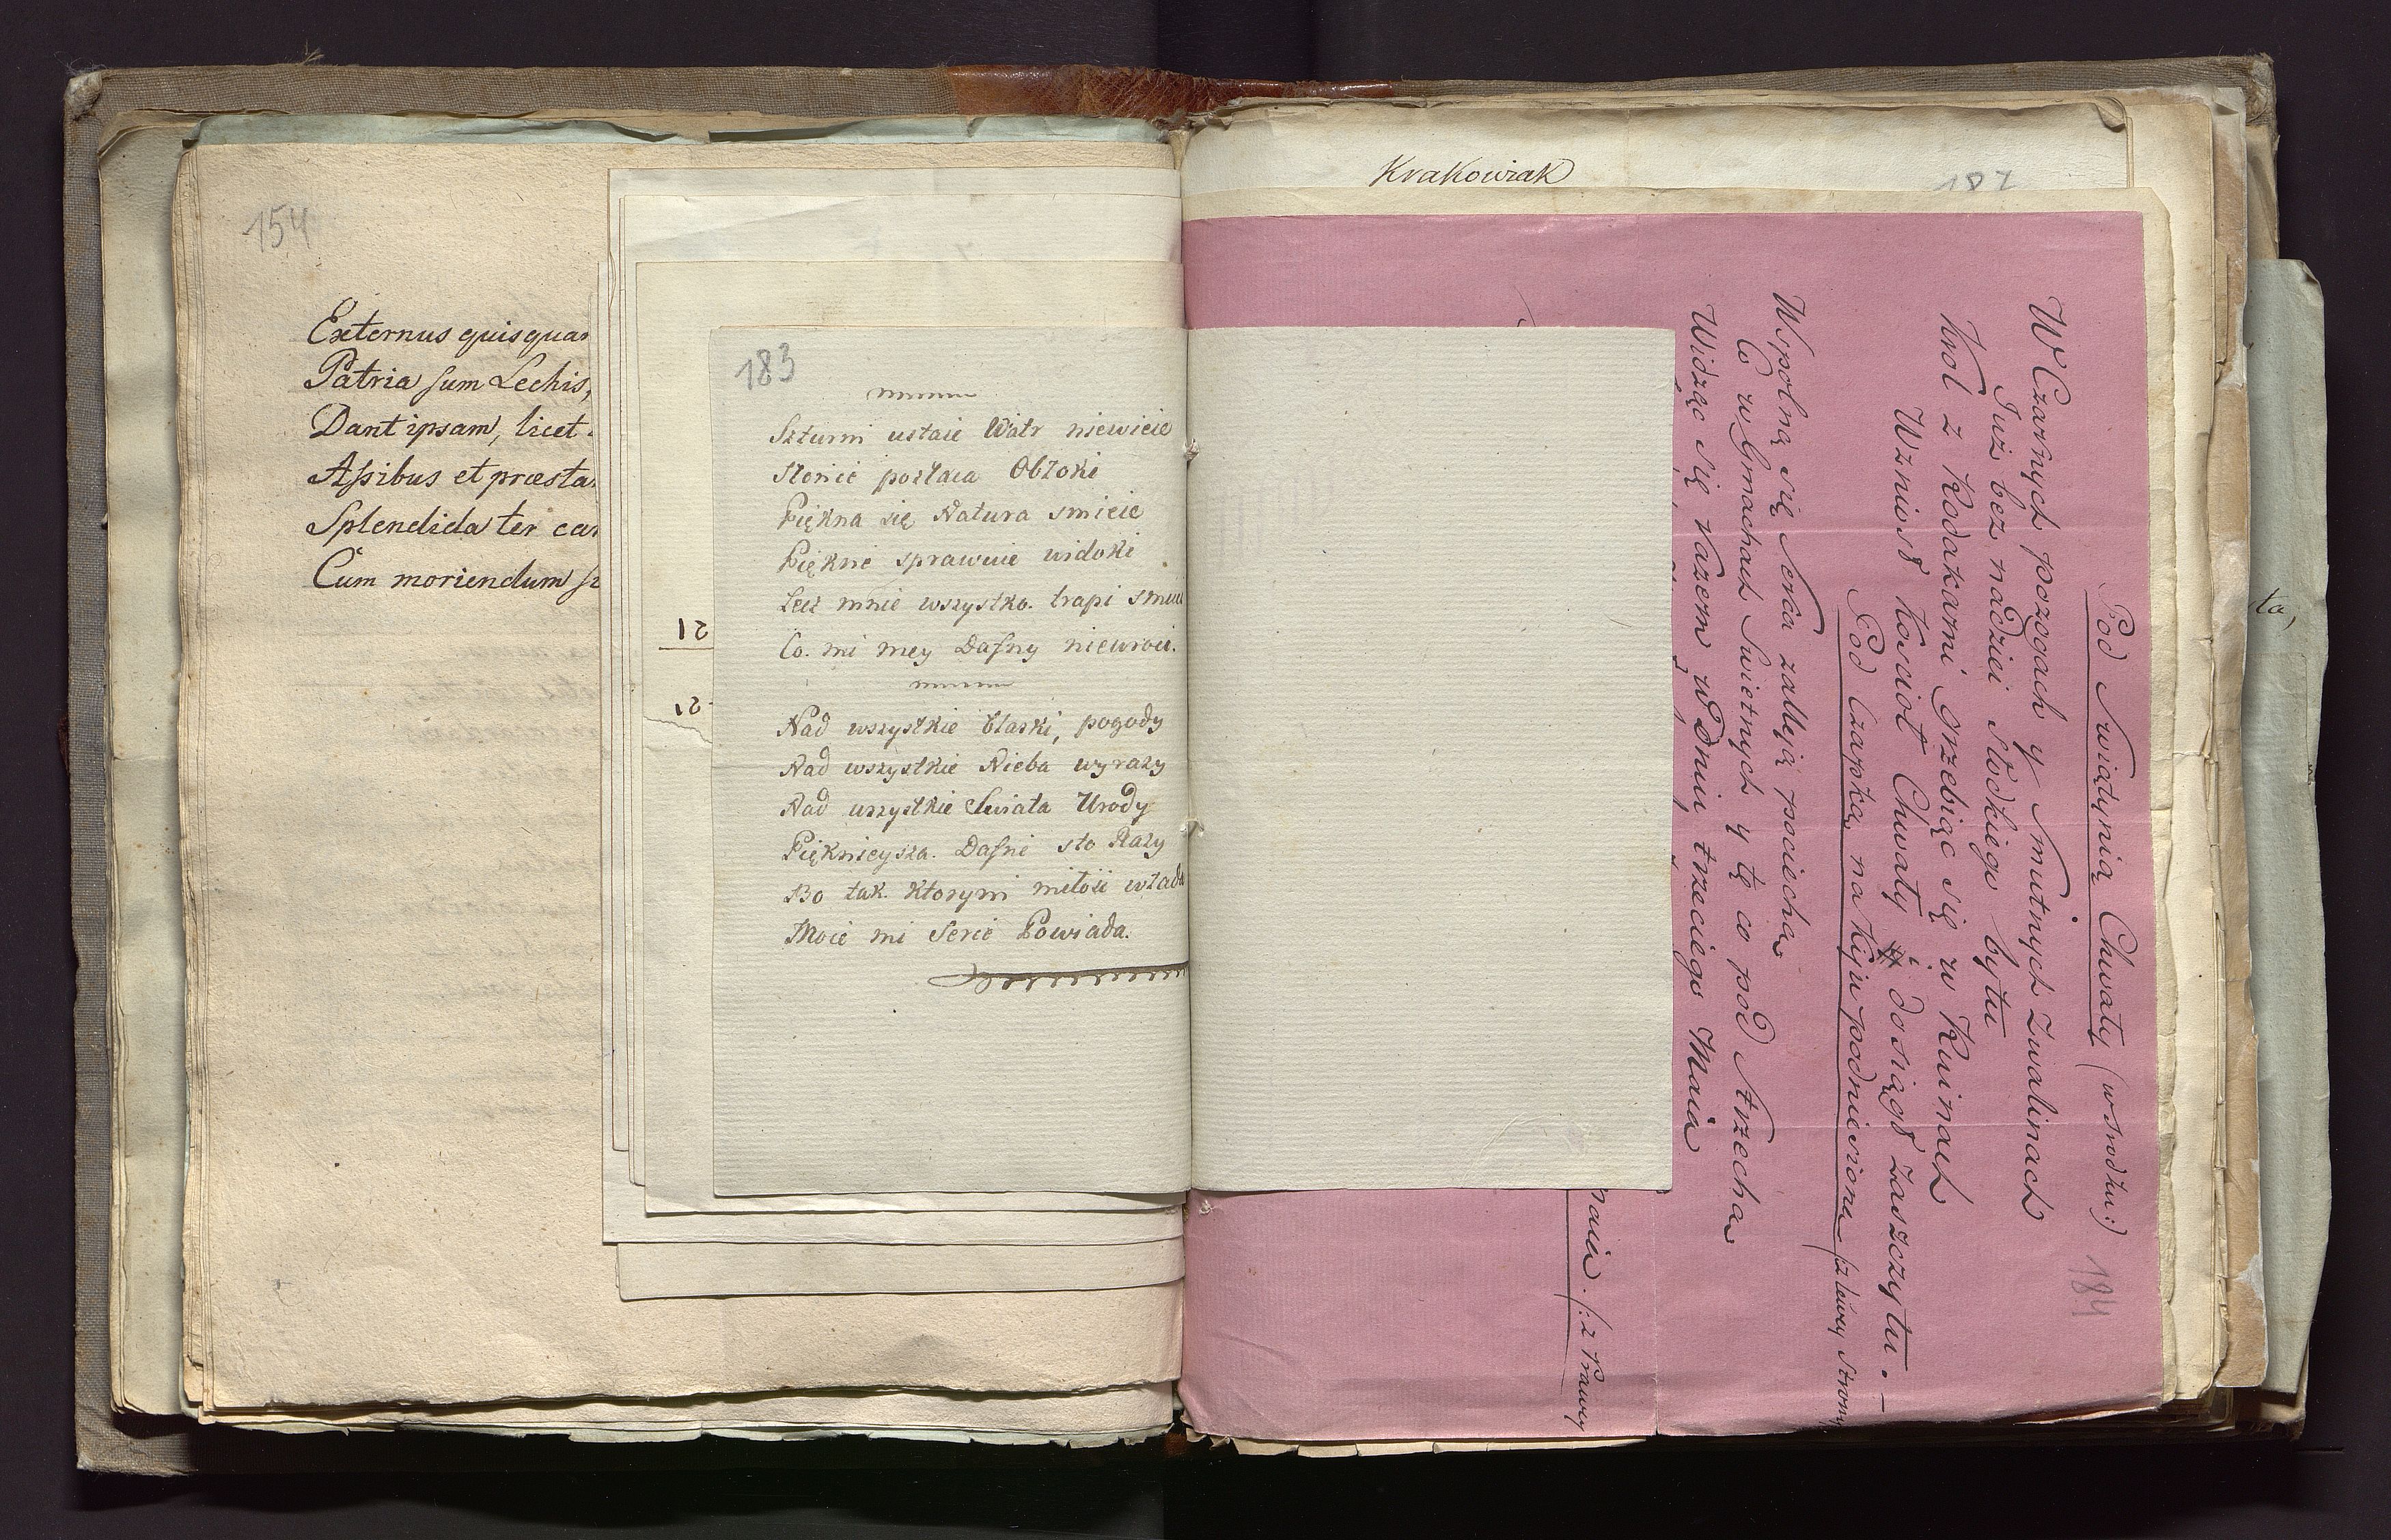 154
Externus quisquam
Patria sum Lechis,
Dant ipsam, licet
Assibus et præsta
Splendida ter ca
Cum moriendum s
21
21
183
Szturm ustaie Watr niewieie
Słonce pozłaca Obłoki
Piękna się Natura smieie
Piękne sprawuie widoki
Lecz mnie wszystko trapi smuci
Co. mi mey Dafny niewroci.
Nad wszystkie blaski, pogody
Nad wszystkie Nieba wyrazy
Nad wszystkie Swiata Urody
Pięknieysza. Dafne sto Razy
Bo tak. ktorymi miłość włada
Moie mi Serce Powiada.
Krakowiak
187
Pod Swiątynią Chwały (w srodku:)
184
W Czarnych pozogach y smutnych zwalinach
Już bez nadziei słodkiego bytu
Krol z Rodakami grzebiąc się w Ruinach
Wzniosł Kościoł Chwały i dosiągł zaszczytu. –
Pod Czapką na Kiju podniesioną (z lewey strony
Wspolną się serca zalleją pociechą
Co w Gmachach Swietnych y tę co pod Strzechą
Widząc się razem w Dniu trzeciego Maia
naiu. (: z Prawey
ta,